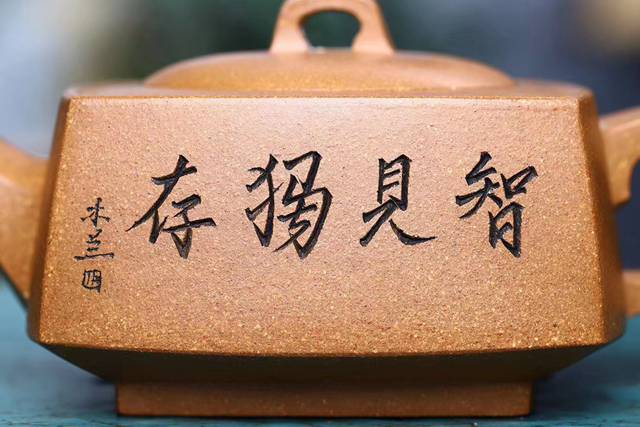 智見獨存
木兰